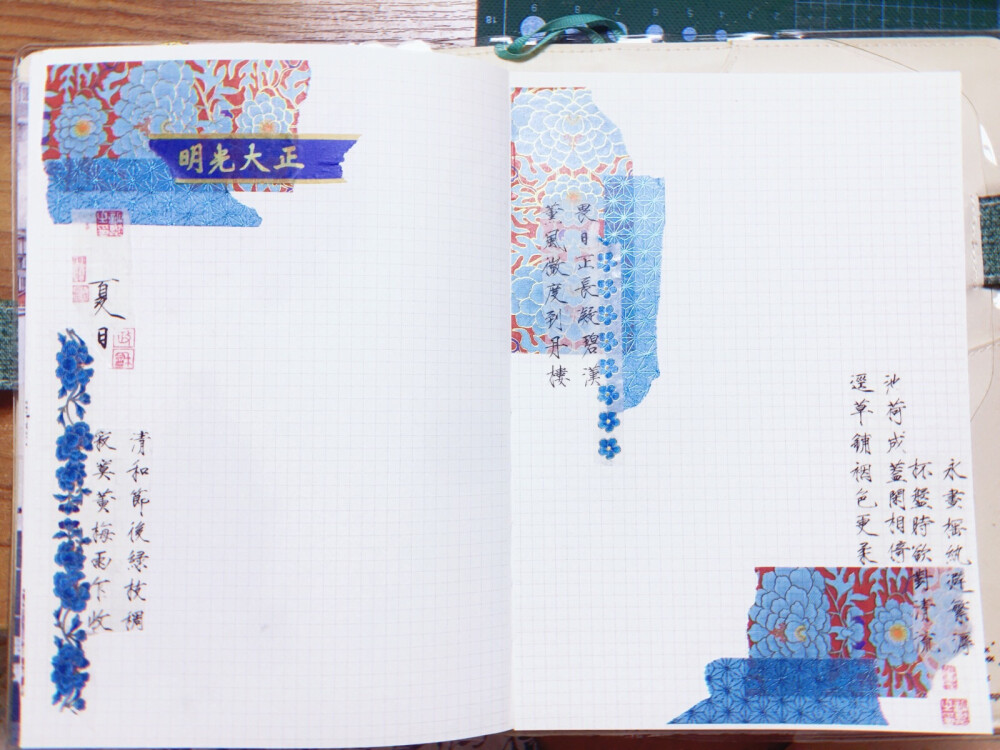 正大光明
夏日
清和節後綠枝稠
寂寞黃梅雨乍收
畏日正長凝碧漢
薰風微度到丹樓
池荷成蓋閑相倚
逕草鋪裀色更柔
永晝搖紈避繁溽
杯盤時欲對清流